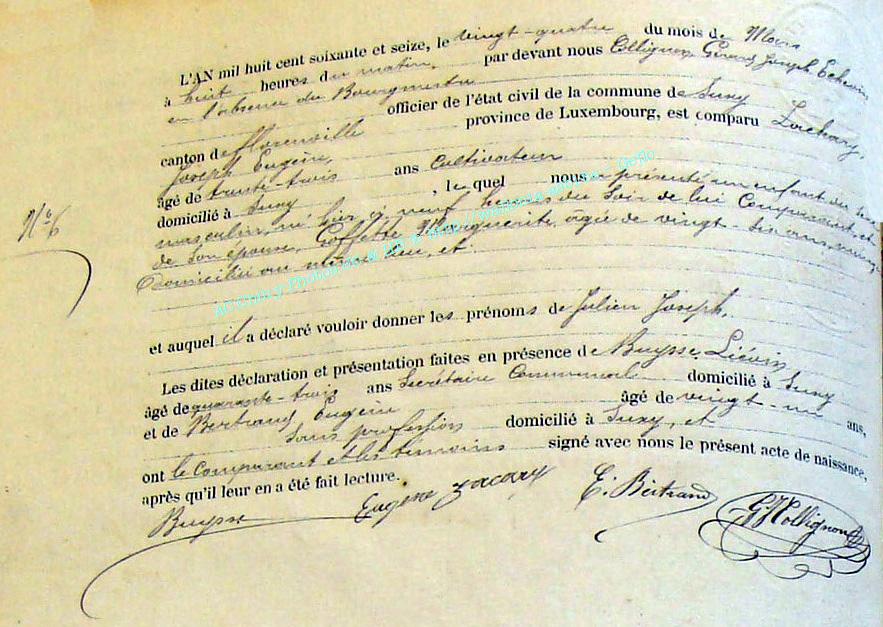 L'AN mil huit cent soixante et seize, le vingt-quatre du mois de Mars
à huit heures du matin, par devant nous Collignon Gérard Joseph Echevin
en l'absence du Bourgmestre officier de l'état civil de la commune de Suxy
canton de florenville province de Luxembourg, est comparu Zachary,
Joseph Eugène,
âgé de trente-trois ans Cultivateur
domicilié à Suxy, lequel nous a présenté un enfant du sexe
N° 6
masculin, né hier à neuf heures du soir de lui Comparant, et
de son épouse, Goffette Marguerite, agée de vingt-six ans,
Domicilié au même lieu, et
et auquel il a déclaré vouloir donner les prénoms de Julien Joseph.
Les dites déclaration et présentation faites en présence de Buysse Liévin
âgé de quarante-trois ans Secrétaire Communal domicilié à Suxy
et de Bertrand Eugène âgé de vingt-un ans,
Sans profession domicilié à Suxy, et
ont le Comparant et les témoins signé avec nous le présent acte de naissance,
après qu'il leur en a été fait lecture.
Buysse Eugène zacary E. Bertrand G J Collignon